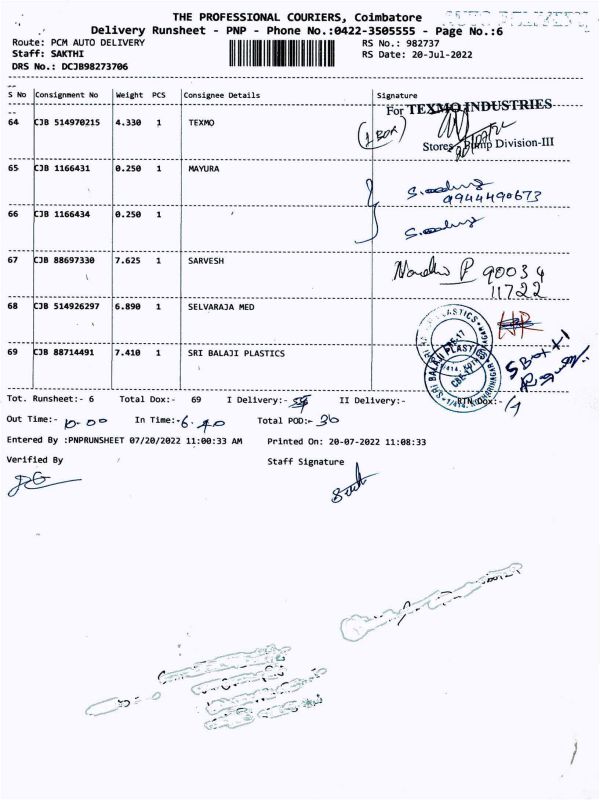 THE PROFESSIONAL COURIERS, Coimbatore
AUTO DELIVERY
Delivery Runsheet - PNP - Phone No.:0422-3505555 - Page No.:6
Route: PCM AUTO DELIVERY RS No.: 982737
Staff: SAKTHI RS Date: 20-Jul-2022
DRS No.: DCJB98273706
S No Consignment No Weight PCS Consignee Details Signature
For TEXMO INDUSTRIES
64 CJB 514970215 4.330 1 TEXMO (1 BOX)
Stores Pump Division-III
65 CJB 1166431 0.250 1 MAYURA
9944490673
66 CJB 1166434 0.250 1
67 CJB 88697330 7.625 1 SARVESH P 90034
11722
68 CJB 514926297 6.890 1 SELVARAJA MED
SRI BALAJI PLASTICS
69 CJB 88714491 7.410 1 SRI BALAJI PLASTICS 5 Box +1
Tot. Runsheet:- 6 Total Dox:- 69 I Delivery:- II Delivery:- RTN Dox:-
Out Time:- In Time:- 6.40 Total POD:- 36
Entered By :PNPRUNSHEET 07/20/2022 11:00:33 AM Printed On: 20-07-2022 11:08:33
Verified By Staff Signature